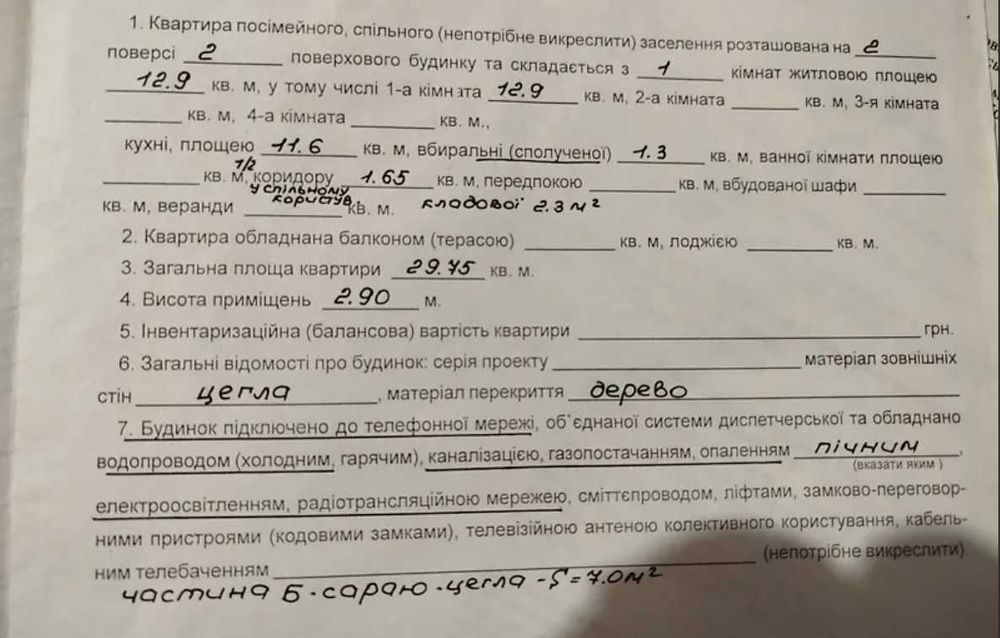 1. Квартира посімейного, спільного (непотрібне викреслити) заселення розташована на 2
поверсі 2 поверхового будинку та складається з 1 кімнат житловою площею
12.9 кв. м, у тому числі 1-а кімната 12.9 кв. м, 2-а кімната кв. м, 3-я кімната
кв. м, 4-а кімната кв. м.,
кухні, площею 11.6 кв. м, вбиральні (сполученої) 1.3 кв. м, ванної кімнати площею
кв. м, 1/2 коридору 1.65 кв. м, передпокою кв. м, вбудованої шафи
у спільному користув.
кв. м, веранди кв. м. кладової 2.3 м²
2. Квартира обладнана балконом (терасою) кв. м, лоджією кв. м.
3. Загальна площа квартири 29.75 кв. м.
4. Висота приміщень 2.90 м.
5. Інвентаризаційна (балансова) вартість квартири грн.
6. Загальні відомості про будинок: серія проекту матеріал зовнішніх
стін цегла, матеріал перекриття дерево
7. Будинок підключено до телефонної мережі, об'єднаної системи диспетчерської та обладнано
водопроводом (холодним, гарячим), каналізацією, газопостачанням, опаленням пічним,
(вказати яким)
електроосвітленням, радіотрансляційною мережею, сміттєпроводом, ліфтами, замково-переговор-
ними пристроями (кодовими замками), телевізійною антеною колективного користування, кабель-
ним телебаченням (непотрібне викреслити)
частина Б - сараю - цегла - S = 7.0 м²